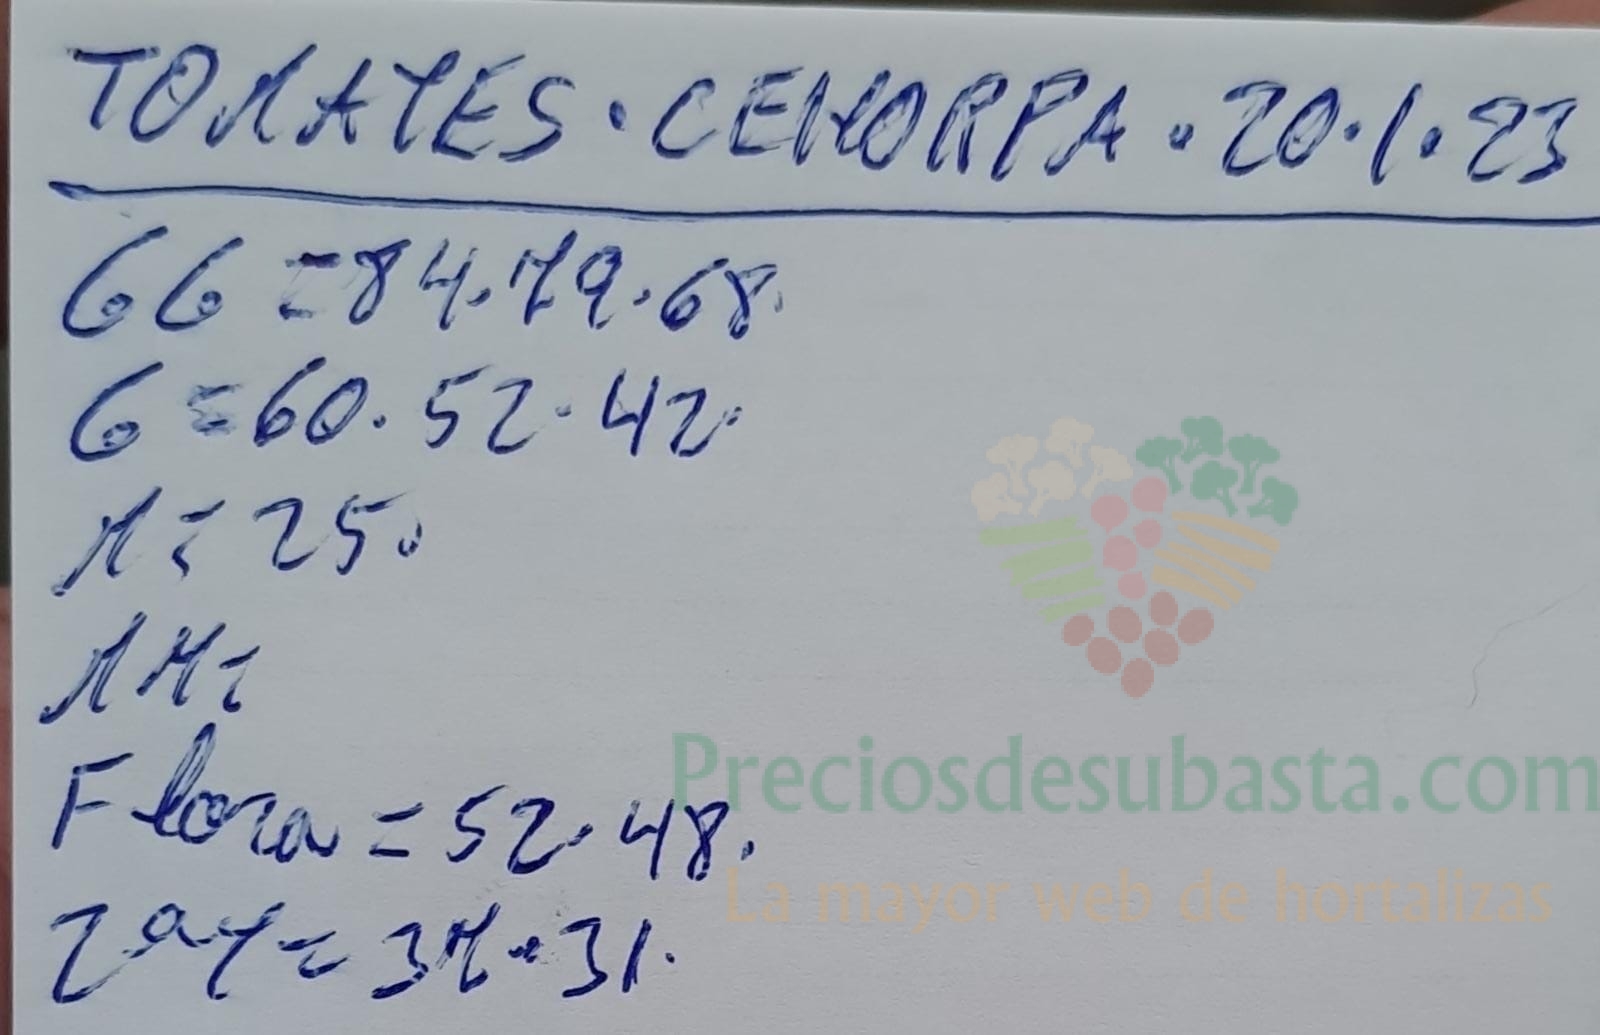 TOMATES · CEHORPA · 20·1·23
GG = 84.79.68.
G = 60. 52. 42.
M = 25.
MM =
Flora = 52. 48.
2ª Y = 37. 31.
Preciosdesubasta.com
La mayor web de hortalizas